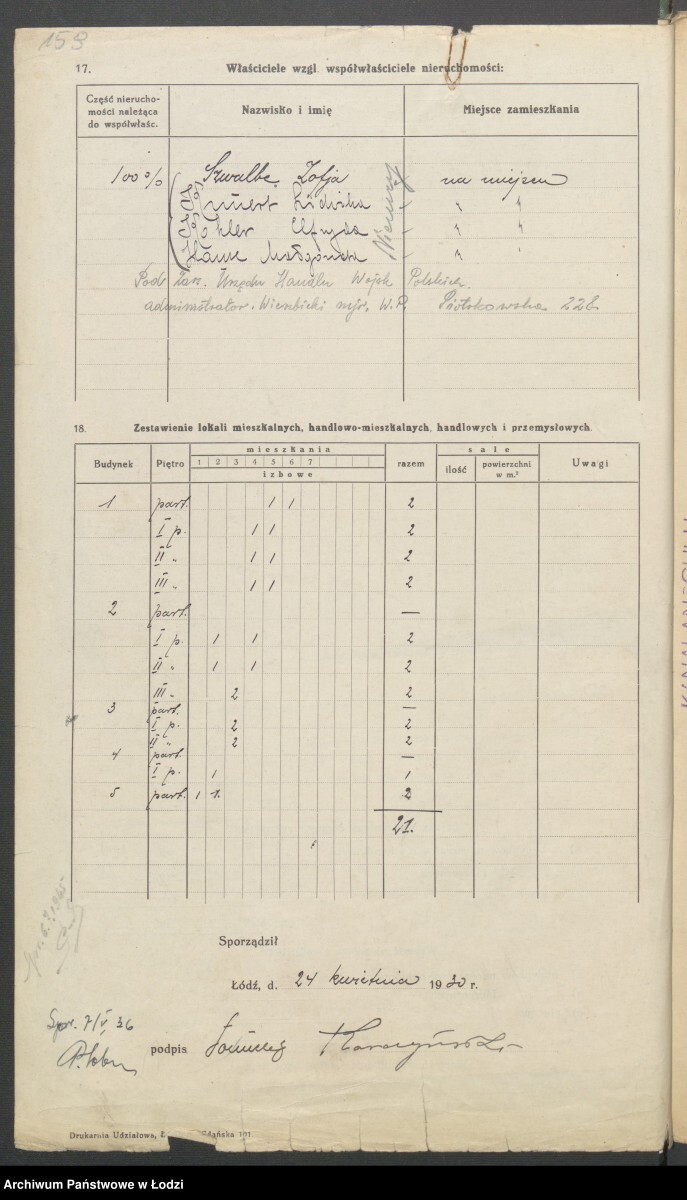 159
17. Właściciele wzgl. współwłaściciele nieruchomości:
Część nierucho-
mości należąca
do współwłaśc.
Nazwisko i imię
Miejsce zamieszkania
100 % Szwalbe Zofja na miejscu
Elfryda
Niemcy
Urzędu Handlu Wojsk Polskich.
administrator. Wierzbicki mjr. W.P. Piotrkowska 228
18. Zestawienie lokali mieszkalnych, handlowo-mieszkalnych, handlowych i przemysłowych.
Budynek Piętro mieszkania razem sale Uwagi
1 2 3 4 5 6 7 ilość powierzchni
w m.²
izbowe
1 part. 1 1 2
I p. 1 1 2
II „ 1 1 2
III „ 1 1 2
2 part. —
I p. 1 1 2
II „ 1 1 2
III „ 2 2
3 part. —
I p. 2 2
II „ 2 2
4 part. —
I p. 1 1
5 part. 1 1. 2
21.
Sporządził
Łódź, d. 24 kwietnia 1930 r.
Spr. 7/V 36
podpis
Drukarnia Udziałowa, Gdańska 101.
Archiwum Państwowe w Łodzi